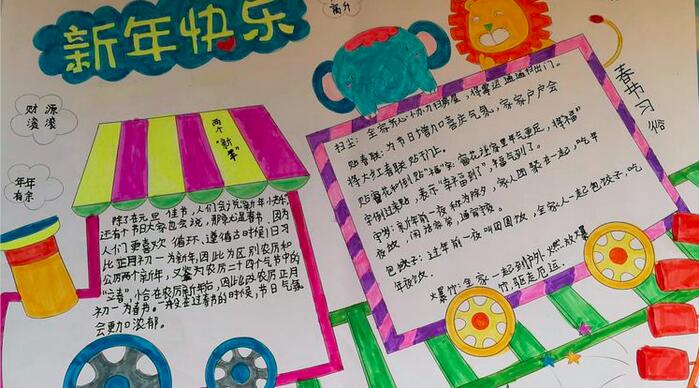 新年快乐
高升
财源
滚滚
年年
有余
两个“新年”
除了在元旦佳节,人们会说新年快乐,
还有个节日大家也会说,那就是春节,因为
人们更喜欢循环,遵循古时候
比正月初一为新年,因此为区别农历和
公历两个新年,又鉴为农历二十四个节气中的
“立春”,恰在农历新年后,因此改农历正月
初一为春节。一般去过春节的时候,节日气氛
会更加浓郁。
春节习俗
扫尘:全家齐心协力扫房屋,将霉运通通扫出门。
贴春联:为节日增加喜庆气氛,家家户户会
将大红春联贴于门上。
贴窗花和倒贴“福”字:窗花让家里年气更足,将“福”
字倒过来贴,表示“幸福到了”,“福气到了”。
守岁:新年前一夜称为除夕,家人团聚在一起,吃年
夜饭,闲话家常,通宵守夜。
包饺子:过年前一夜叫团圆夜,全家人一起包饺子,吃
年夜饭。
爆竹:全家一起到户外燃放爆
竹,驱走厄运.